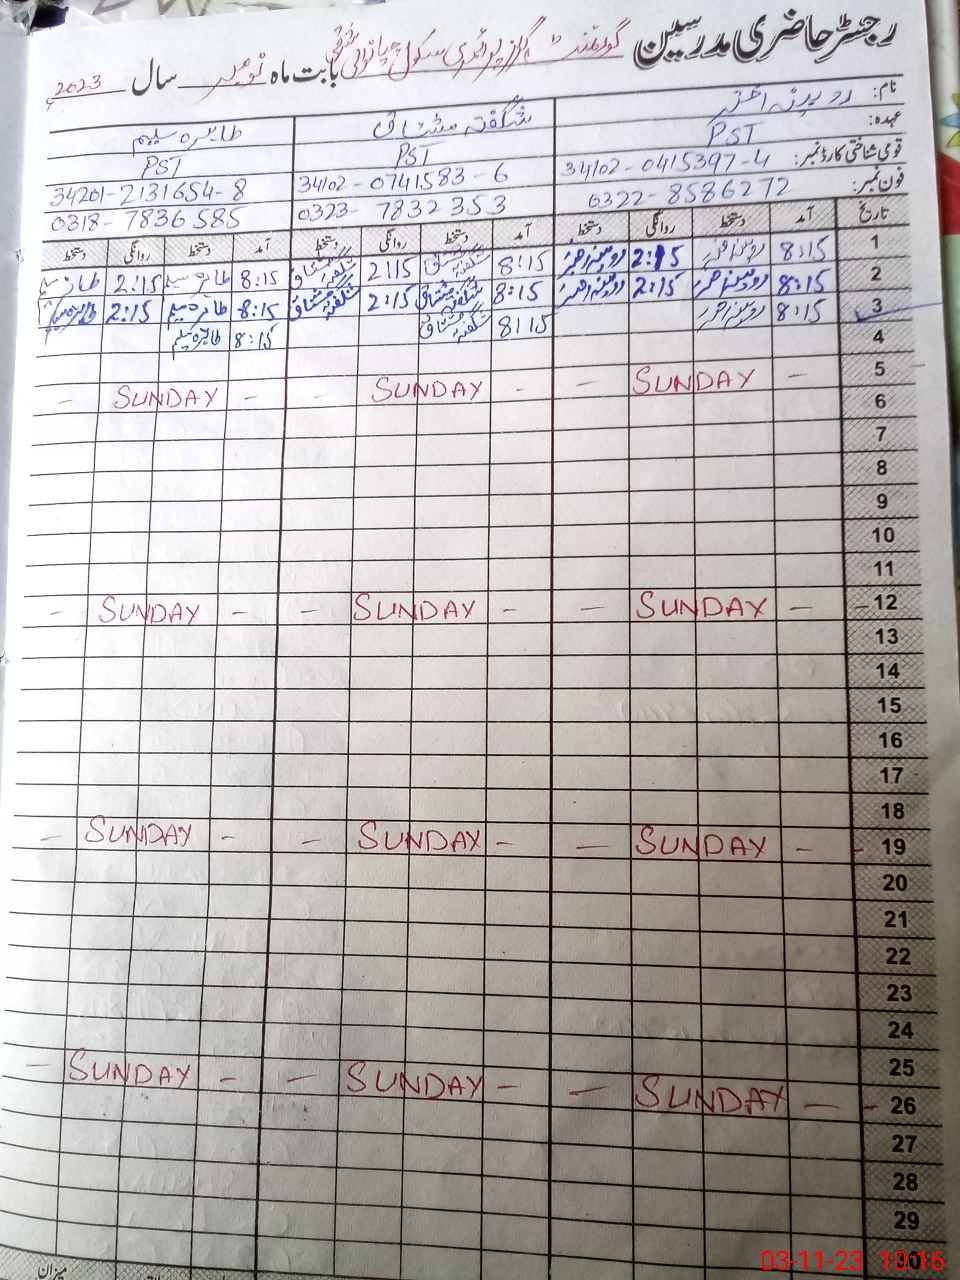 رجسٹر حاضری مدرسین گورنمنٹ گرلز پرائمری سکول بابت ماہ نومبر سال 2023
نام: روبینہ اختر شگفتہ مشتاق طاہرہ سلیم
عہدہ: PST PST PST
قومی شناختی کارڈ نمبر: 34102-0415397-4 34102-0741583-6 34201-2131654-8
فون نمبر: 0322-8586272 0323-7832353 0318-7836585
تاریخ آمد دستخط روانگی دستخط آمد دستخط روانگی دستخط آمد دستخط روانگی دستخط
1 8:15 2:15 8:15 شگفتہ مشتاق 2:15 شگفتہ مشتاق 8:15 طاہرہ سلیم 2:15 طاہرہ سلیم
2 8:15 2:15 8:15 شگفتہ مشتاق 2:15 شگفتہ مشتاق 8:15 طاہرہ سلیم 2:15 طاہرہ سلیم
3 8:15 8:15 شگفتہ مشتاق 8:15 طاہرہ سلیم
4
5 - SUNDAY - - SUNDAY - - SUNDAY -
6
7
8
9
10
11
12 - - SUNDAY - - SUNDAY - - SUNDAY -
13
14
15
16
17
18
19 - - SUNDAY - - SUNDAY - - SUNDAY -
20
21
22
23
24
25
26 - - SUNDAY - - SUNDAY - - SUNDAY -
27
28
29
30
میزان
03-11-23 10:16